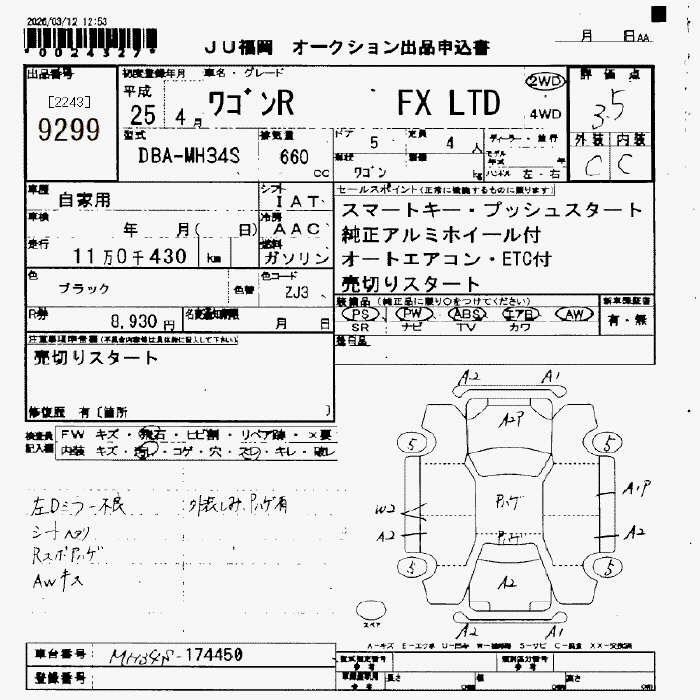 2026/03/12 12:53
*0024327*
JU福岡 オークション出品申込書
月 日AA
出品番号
[2243]
9299
初度登録年月 車名・グレード
平成
25 4月
ワゴンR FX LTD
2WD
4WD
評価点
3.5
外装 内装
C C
型式
DBA-MH34S
排気量
660 cc
ドア 5
定員 4 人
形状 ワゴン
積載 kg
ディーラー・並行
モデル年式 年
ハンドル 左・右
車歴
自家用
シフト
IAT
車検
年 月( 日)
冷房
AAC
走行
11万0千430 km
燃料
ガソリン
色
ブラック
色替
色コード
ZJ3
R券
8,930円
名変通知期限
月 日
セールスポイント(正常に機能するものに限ります)
スマートキー・プッシュスタート
純正アルミホイール付
オートエアコン・ETC付
売切りスタート
装備品(純正品に限り○をつけてください)
PS PW ABS エアB AW
SR ナビ TV カワ
新車保証書
有・無
後日品
注意事項準備欄(不具合内容等は具体的に記入して下さい)
売切りスタート
修復歴 有〔箇所 〕
検査員記入欄
FW キズ・飛石・ヒビ割・リペア跡・×要
内装 キズ・汚レ・コゲ・穴・スレ・キレ・破レ
左Dミラー不良
シートヘタリ
Rスポハゲ
AWキズ
A2 A1
A2P
5 5
Pハゲ
A1P
W2
A2
A2
5 5
A2
A2 A1
スペア
A-キズ E-エクボ U-凹み W-補修跡 S-サビ C-腐食 XX-交換済
車台番号 MH34S-174450
登録番号
型式指定番号 参考
類別区分番号 参考
長さ 幅 高さ